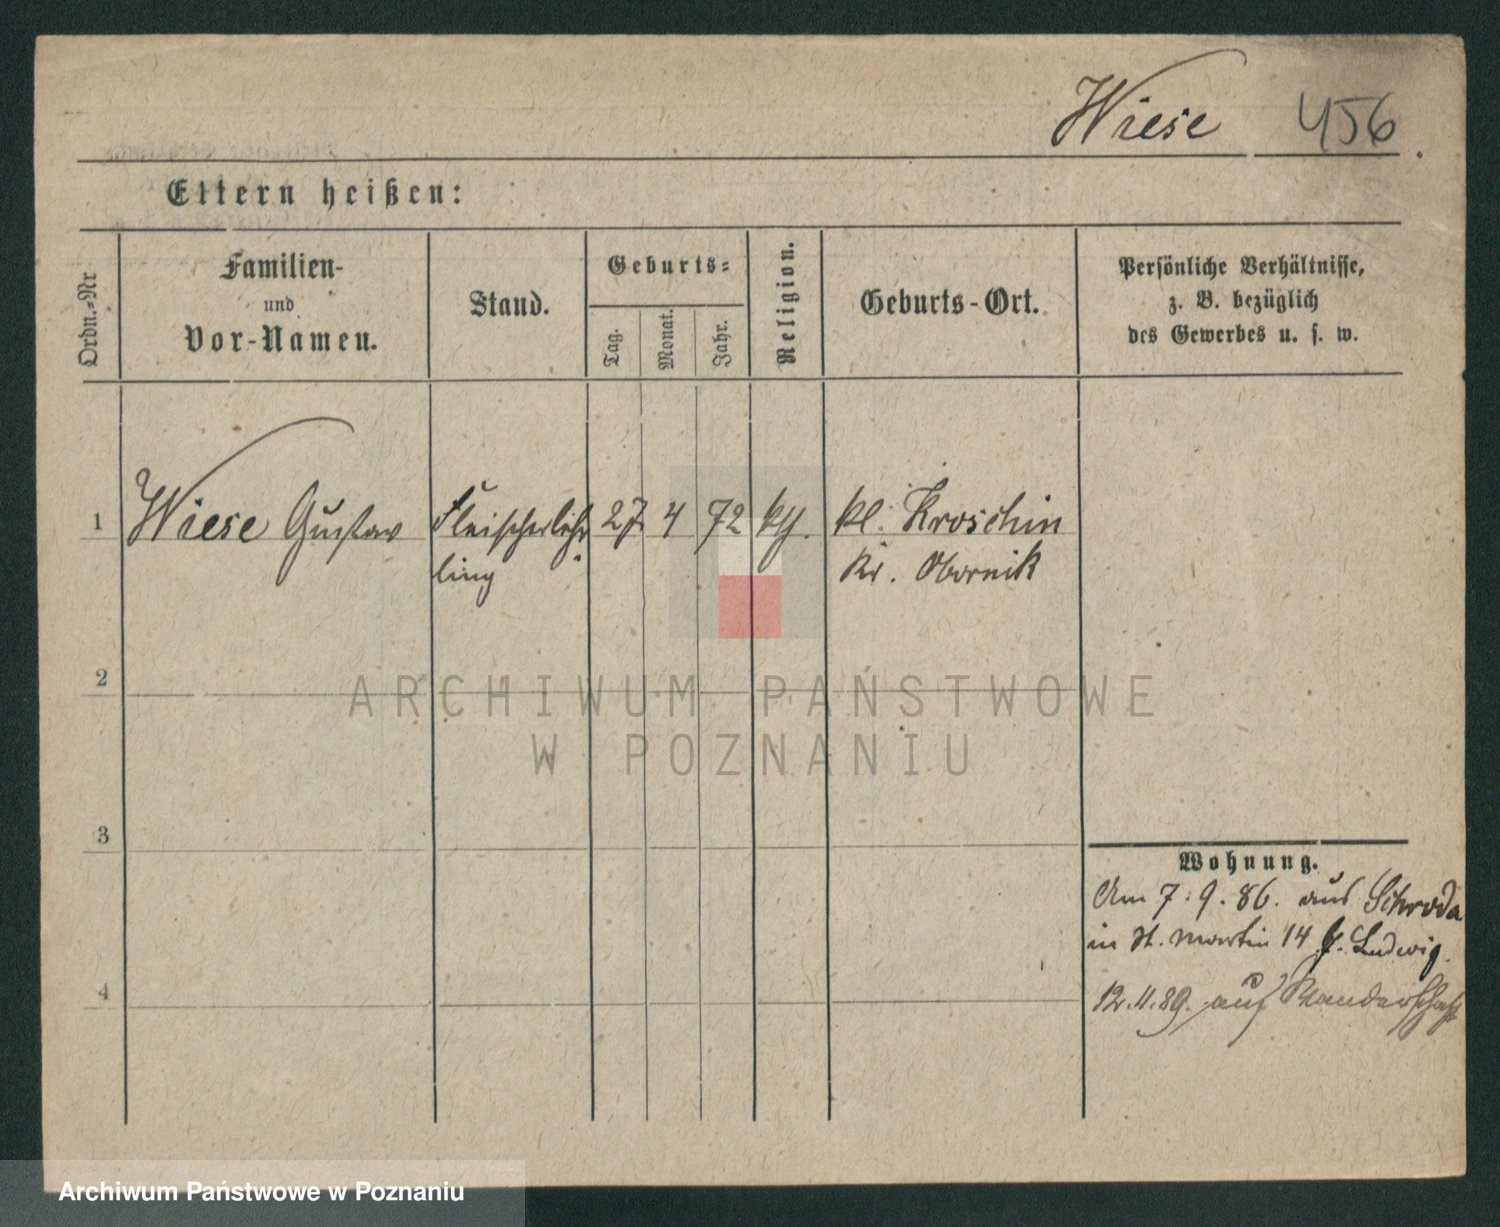 Wiese 456
Eltern heißen:
Ordn.-Nr
Familien-
und
Vor-Namen.
Stand.
Geburts-
Tag.
Monat.
Jahr.
Religion.
Geburts-Ort.
Persönliche Verhältnisse,
z. B. bezüglich
des Gewerbes u. s. w.
1 Wiese Gustav Fleischerlehr 27 4 72 Kl. Kroschin
ling Kr. Obornik
2
ARCHIWUM PAŃSTWOWE
W POZNANIU
3
Wohnung.
Am 7.9.86. aus Schroda
in St. Martin 14 Ludwig.
4
12.11.89. auf Wanderschaft
Archiwum Państwowe w Poznaniu